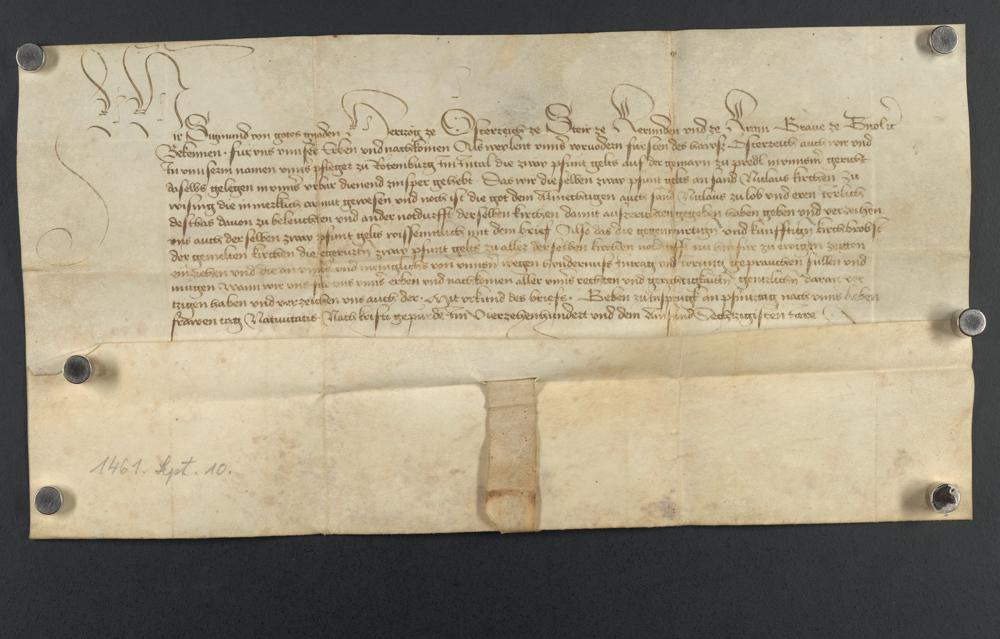 Wir Sigmund von gotes gnaden Hertzog ze Osterreich ze Steir ze Kernnden vnd ze Krain Graue ze Tyrol etc
Bekennen fur vns vnnser Erben vnd nachkomen Als weylent vnnser voruodern fursten des hawss Osterreich auch wir vnd
in vnnserm namen vnnser pfleger zu Rotemburg im Intal die zway pfunt gelts auf der gemayn zu predl in vnnserm gericht
daselbs gelegen in vnnser vrbar dienend zinsper gehebt Das wir dieselben zway pfunt gelts an sand Niclaus kirchen zu
wising die in merklich armut gewesen vnd noch ist die got dem Almechtigen auch sand Niclaus zu lob vnd eren
destbas dauon zu beleuchten vnd ander notdurfft derselben kirchen damit gegeben haben geben vnd verzeihen
vns auch der selben zway pfunt gelts wissenntlich mit dem brief Also das die gegenwurtign vnd kunfftign kirchbrobst
der gemelten kirchen die egerurten zway pfunt gelts zu aller derselben kirchen notdurfft nu hinfur zu ewigen zeiten
einziehen vnd die an vnnser vnd meniglichs von vnnsern wegen hindernuss Intrag vnd irrung geprauchen sullen vnd
mugen wann wir vns fur vns vnnser erben vnd nachkomen aller vnnser rechten vnd gerechtigkaiten genntzlichen daran ver
tzigen haben vnd verzeihen vns auch der Mit vrkund des briefs Geben zu Insprugk an pfintztag nach vnnser lieben
frawen tag Natiuitatis Nach kristi gepurde Im Vierzehenhundert vnd dem Ainsund Sechtzigisten Jare
1461. Sept. 10.